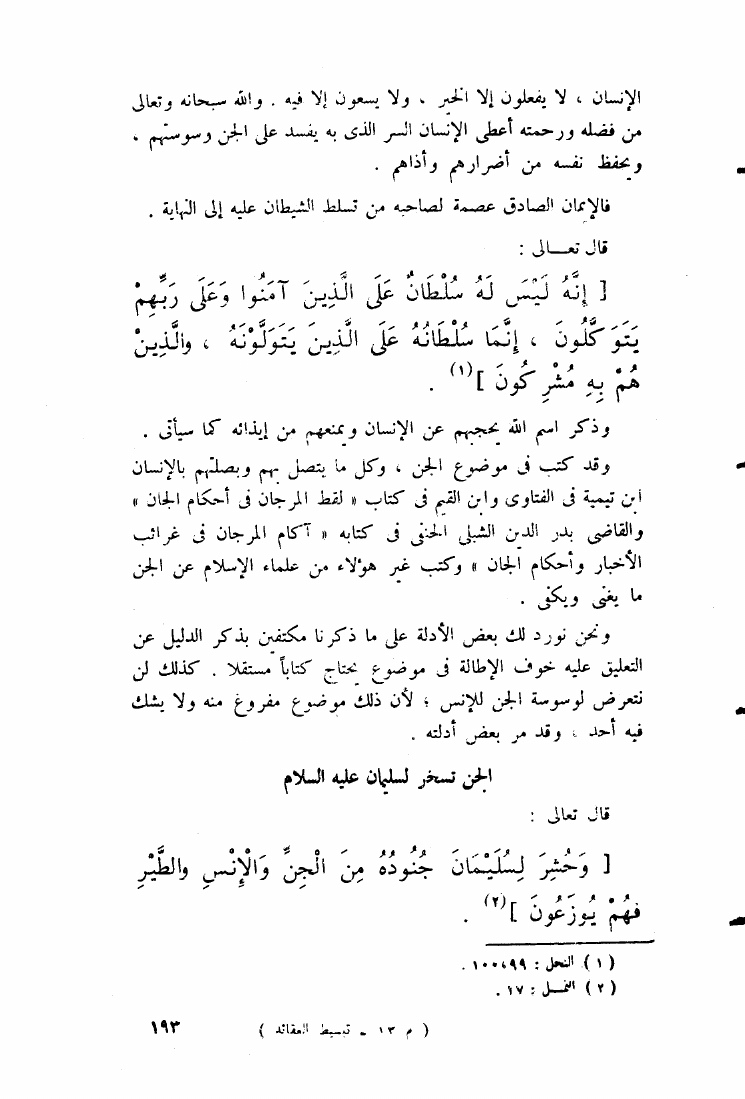 الإنسان ، لا يفعلون إلا الخير ، ولا يسعون إلا فيه . والله سبحانه وتعالى
من فضله ورحمته أعطى الإنسان السر الذى به يفسد على الجن وسوستهم ،
ويحفظ نفسه من أضرارهم وأذاهم .
فالإيمان الصادق عصمة لصاحبه من تسلط الشيطان عليه إلى النهاية .
قال تعــالى :
[ إِنَّهُ لَيْسَ لَهُ سُلْطَانٌ عَلَى الَّذِينَ آمَنُوا وَعَلَى رَبِّهِمْ
يَتَوَكَّلُونَ ، إِنَّمَا سُلْطَانُهُ عَلَى الَّذِينَ يَتَوَلَّوْنَهُ ، والَّذِينْ
هُمْ بِهِ مُشْرِكُونَ ](١) .
وذكر اسم الله يحجبهم عن الإنسان ويمنعهم من إيذائه كما سيأتى .
وقد كتب فى موضوع الجن ، وكل ما يتصل بهم وبصلتهم بالإنسان
ابن تيمية فى الفتاوى وابن القيم فى كتاب « لقط المرجان فى أحكام الجان »
والقاضى بدر الدين الشبلى الحنفى فى كتابه « آكام المرجان فى غرائب
الأخبار وأحكام الجان » وكتب غير هؤلاء من علماء الإسلام عن الجن
ما يغنى ويكفى .
ونحن نورد لك بعض الأدلة على ما ذكرنا مكتفين بذكر الدليل عن
التعليق عليه خوف الإطالة فى موضوع يحتاج كتاباً مستقلا . كذلك لن
نتعرض لوسوسة الجن للإنس ؛ لأن ذلك موضوع مفروغ منه ولا يشك
فيه أحد ، وقد مر بعض أدلته .
الجن تسخر لسليمان عليه السلام
قال تعالى :
[ وَحُشِرَ لِسُلَيْمَانَ جُنُودُهُ مِنَ الْجِنِّ وَالْإِنْسِ والطَّيْرِ
فَهُمْ يُوزَعُونَ ](٢) .
( ١ ) النحل : ٩٩،١٠٠ .
( ٢ ) النمــل : ١٧ .
( م ١٣ ـ تبسيط العقائد )
١٩٣